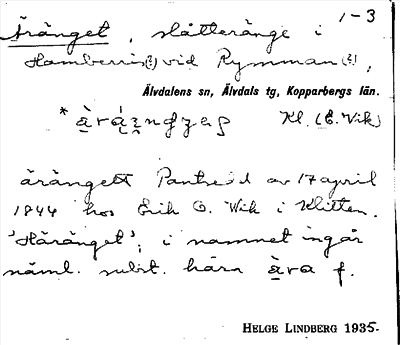 1-3
Äränget, slåtteränge i
Hamberris(?) vid Rymman(?),
Älvdalens sn, Älvdals tg, Kopparbergs län.
Kl. (E. Wik)
ärängett av 17 april
1844 hos Erik O. Wik i Klitten.
'Häränget'; i namnet ingår
näml. subst. hära f.
HELGE LINDBERG 1935.